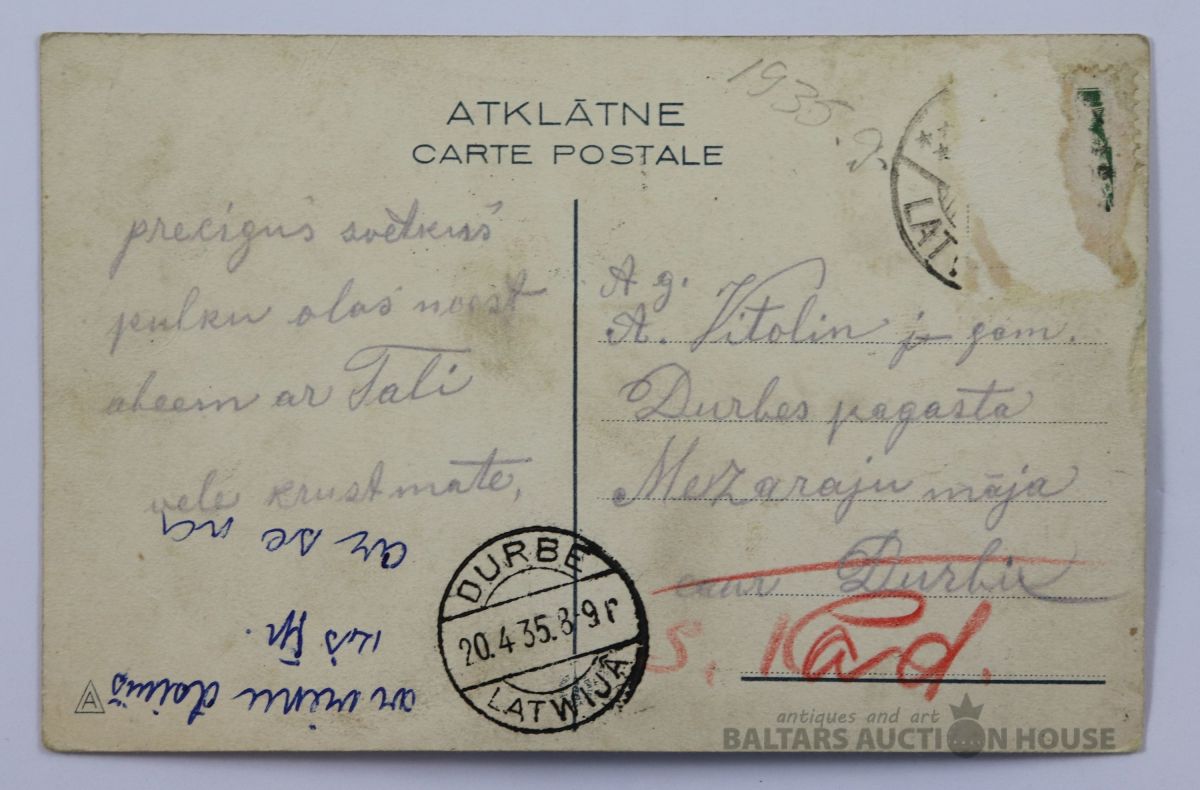 ATKLĀTNE
CARTE POSTALE
1935. g.
LAT
precigus svētkus
pulku olas noest
abeem ar Tali
vele krustmāte,
A. g.
A. Vitolin j-gam.
Durbes pagasta
Mežaraju māja
caur Durbi
S. Rād.
DURBE
20.4 35.8-9
LATWIJA
A
antiques and art
BALTARS AUCTION HOUSE